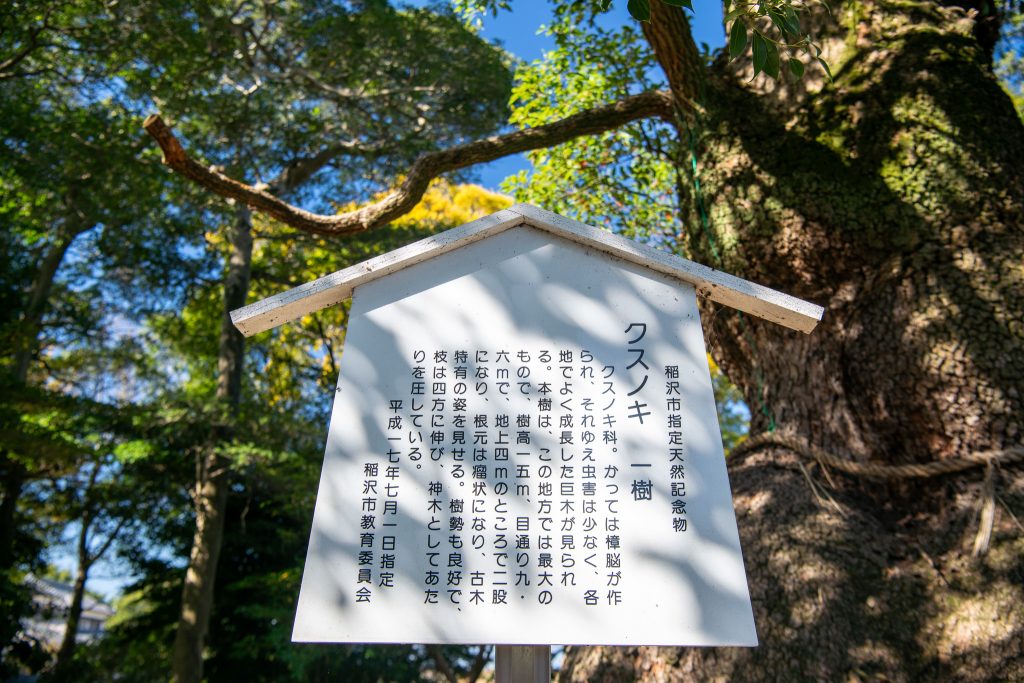 稲沢市指定天然記念物
クスノキ 一樹
クスノキ科。かつては樟脳が作
られ、それゆえ虫害は少なく、各
地でよく成長した巨木が見られ
る。本樹は、この地方では最大の
もので、樹高一五m、目通り九・
六mで、地上四mのところで二股
になり、根元は瘤状になり、古木
特有の姿を見せる。樹勢も良好で、
枝は四方に伸び、神木としてあた
りを圧している。
平成一七年七月一日指定
稲沢市教育委員会